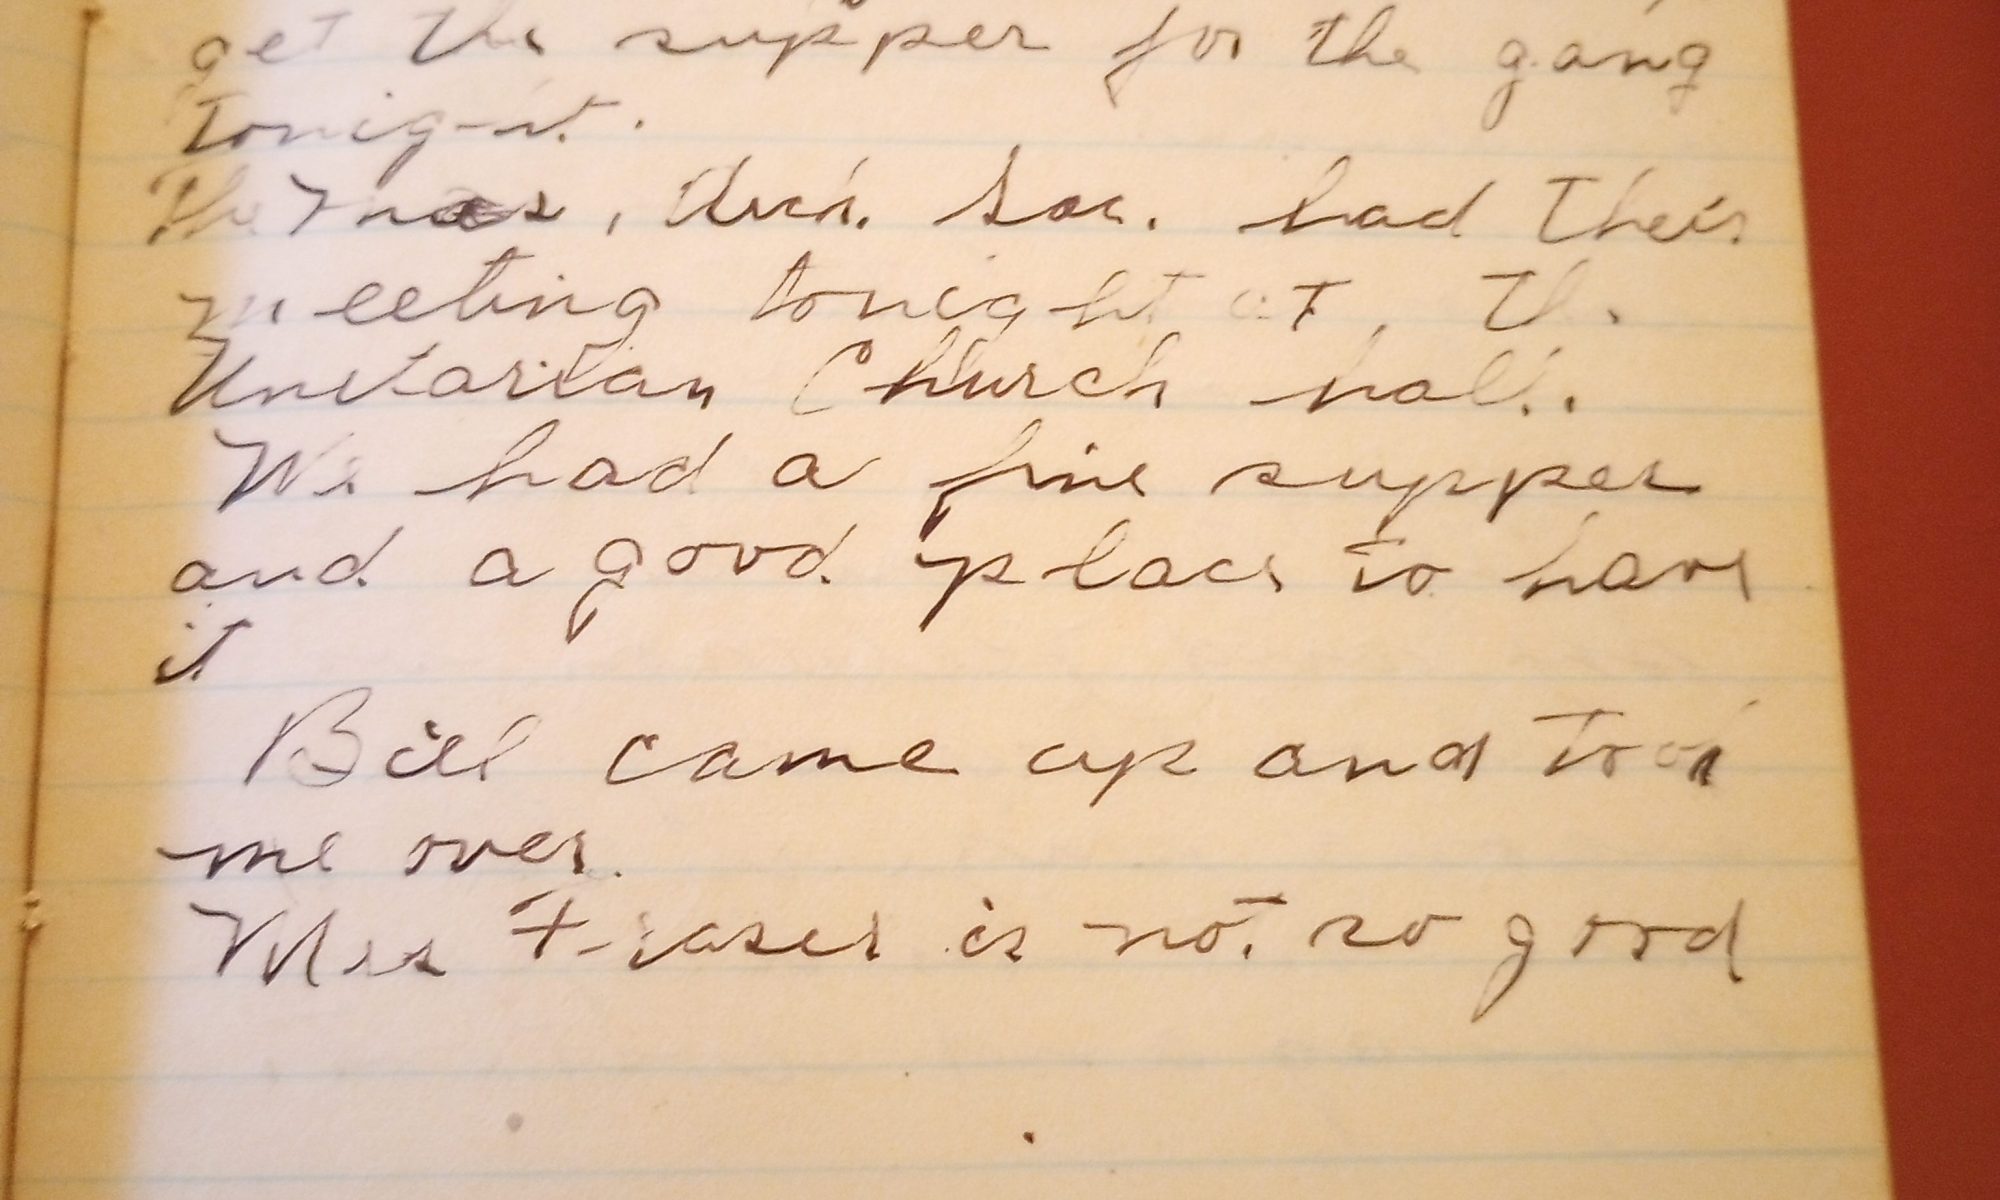 get the supper for the gang
tonight.
The Mass. Arch. Soc. had their
meeting tonight at the
Unitarian Church hall.
We had a fine supper
and a good place to have
it
Bill came up and took
me over.
Mrs Fraser is not so good